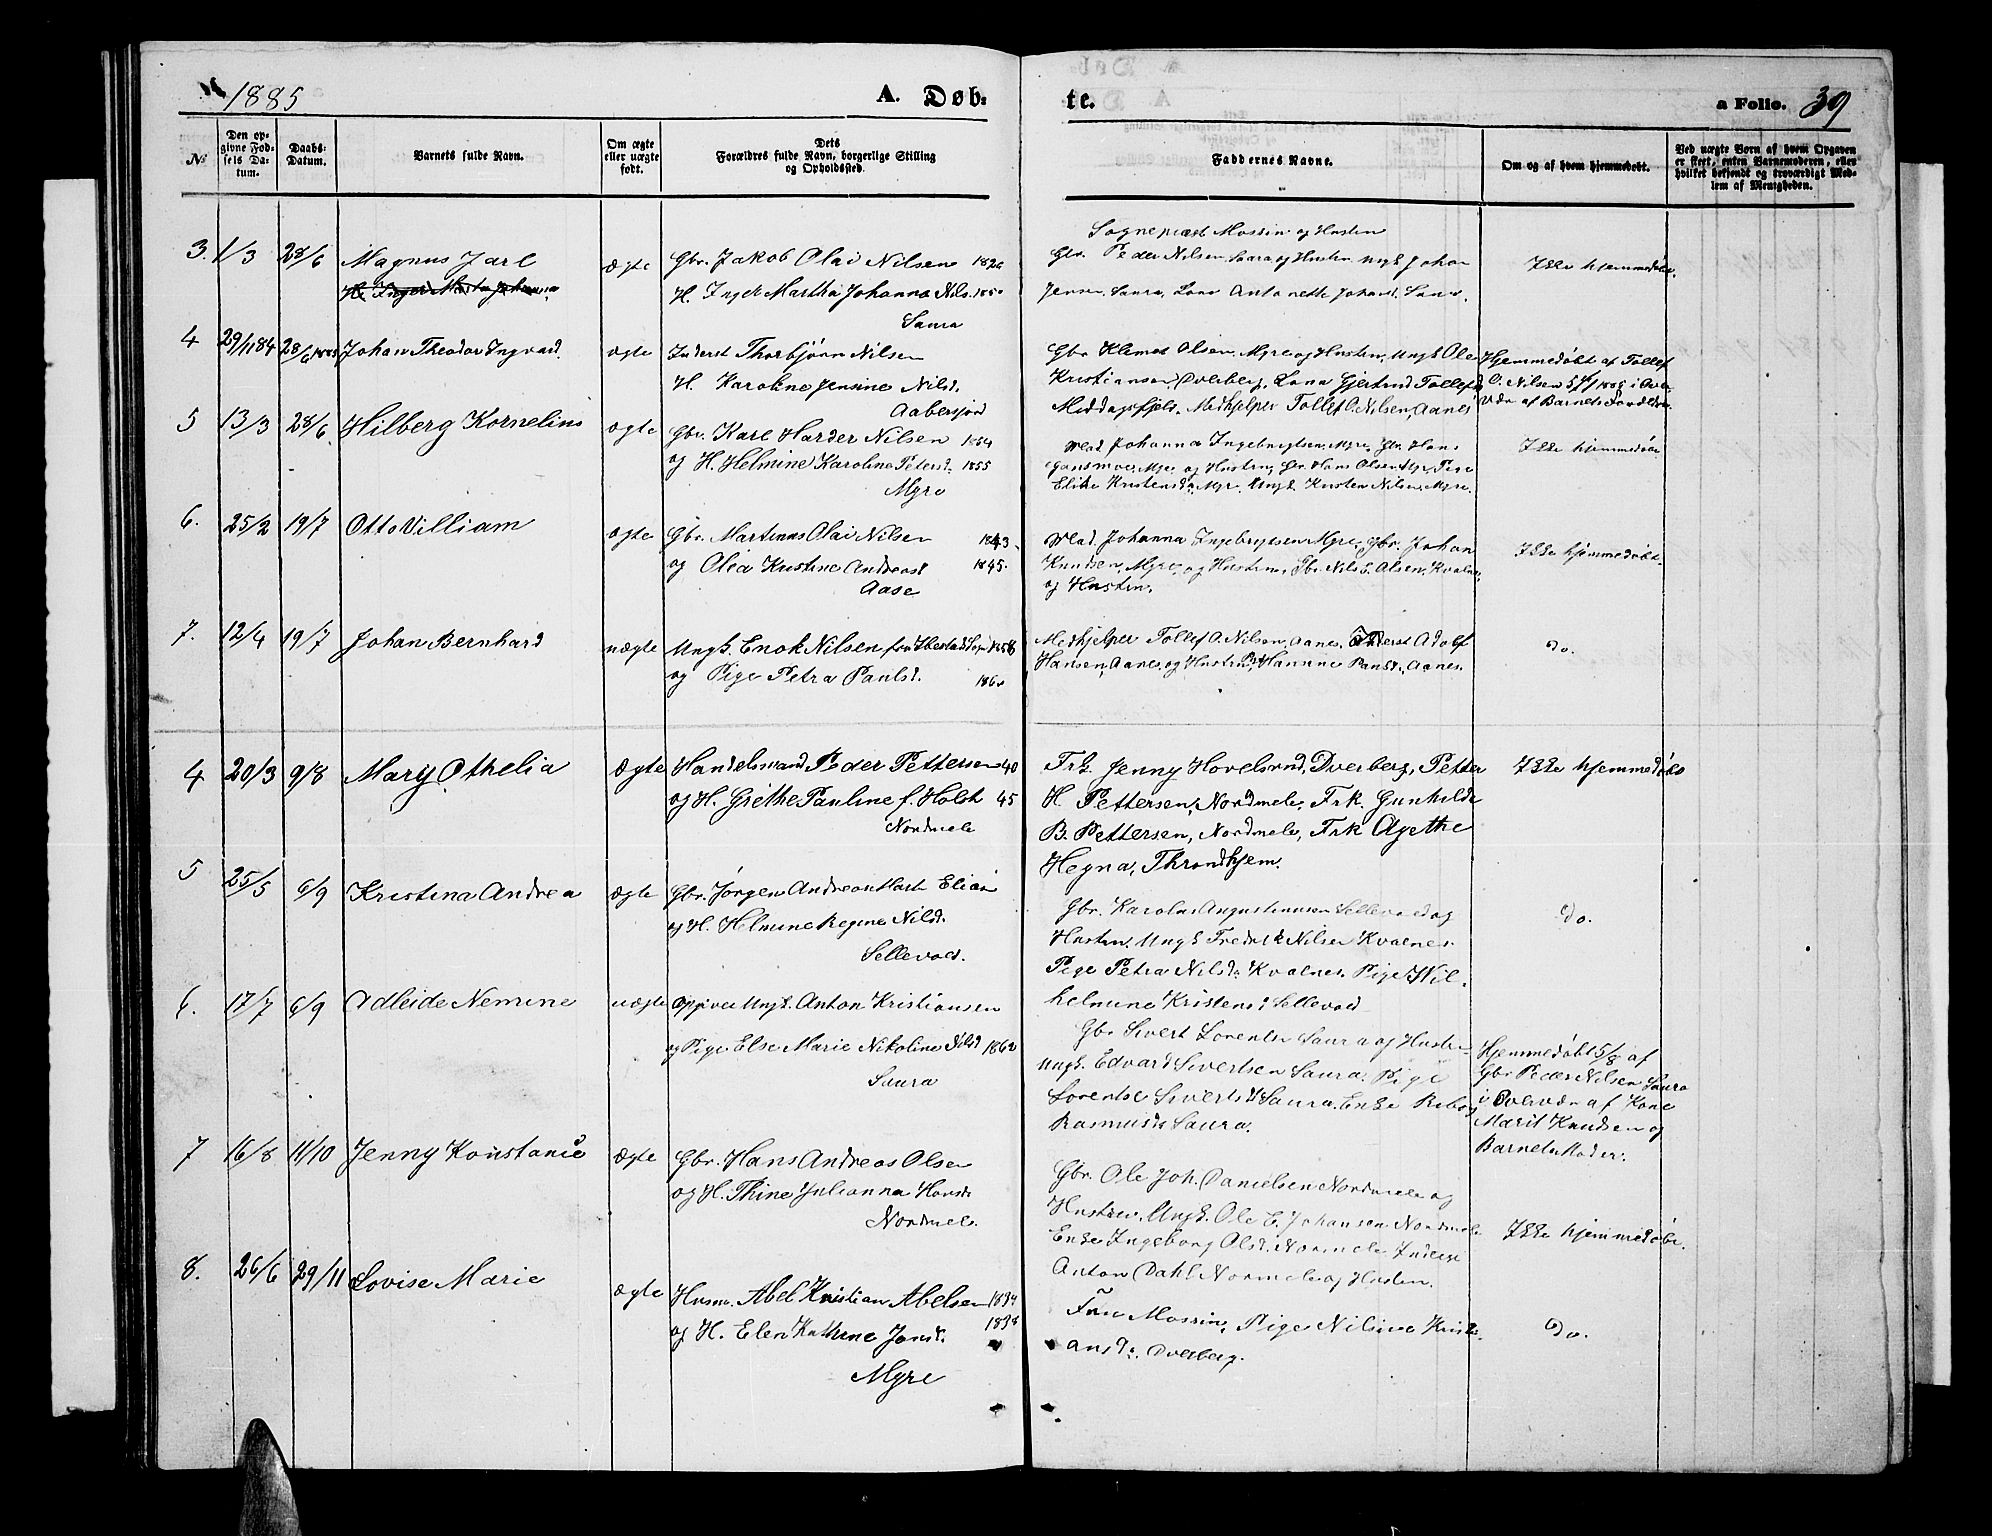 1885
A. Døb-
te.
a Folio. 39
No
Den opgivne Fødsels Datum.
Daabs-Datum.
Varnets fulde Navn.
Om ægte eller uægte født.
Dets Forældres fulde Navn, borgerlige Stilling og Opholdssted.
Faddernes Navne.
Om og af hvem hjemmedøbt.
Ved uægte Børn af hvem Opgaven er skeet, enten Barnemoderen, eller hvilket bekjendt og troværdigt Medlem af Menigheden.
3. 1/3 28/6 Magnus Jarl ægte Gbr. Jakob Olai Nilsen 1826
H. Inger Martha Johanna Nils. 1850
Saura
Sognepræst Mossin og Hustru
Gbr. Peder Nilsen Saura og Hustru Ungk Johan
Jensen, Saura, Kona Antonette Johans. Saura.
Ikke hjemmedøbt.
4 29/11 84 28/6 1885 Johan Theodor Ingvard. ægte Inderst Thorbjørn Nilsen
H. Karoline Jensine Nilsd.
Aabersjord
Gbr Klemet Olsen, Myre og Hustru, Ungk Ole
Kristiansen, Dverberg, Kona Gjertrud Tollefsd
Meddagsfjeld. Medhjelper Tollef O. Nilsen, Aanes
Hjemmedøbt af Tollef
O. Nilsen 5/1 1885 i Over
Vær af Barnets Forældre
5 13/3 28/6 Hilberg Kornelius ægte Gbr. Karl Harder Nilsen 1854
og H. Helmine Karoline Petersd. 1855
Myre
Mad. Johanna Ingebrigtsen, Myre, Gbr. Hans
Myre og Hustru, Gbr. Hans Olsen Myre, Pige
Elise Kristensd. Myre. Ungk. Kristen Nilsen, Myre.
Ikke hjemmedøbt
6. 25/2 19/7 Otto Villiam ægte Gbr. Martinus Olai Nilsen 1843.
og Olea Kristine Andreasd 1845.
Aase
Mad. Johanna Ingebrigtsen Myre, Gbr. Johan
Knudsen, Myre, og Hustru, Gbr. Nils E. Olsen, Kvalnes
og Hustru.
Ikke hjemmedøbt.
7. 12/4 19/7 Johan Bernhard uægte Ungk. Enok Nilsen fra Ibestad Sogn 1858
og Pige Petra Paulsd. 1860
Medhjelper Tollef O. Nilsen, Aanes, Inderst Adolf
Hansen, Aanes, og Hustru, Hansine Paulsd., Aanes.
do.
4 20/3 9/8 Mary Othelia Ægte Handelsmand Peder Pettersen 40
og H. Grethe Pauline f. Holst 45
Nordmele
Frk. Jenny Hovelsrud, Dverberg, Petter
H. Pettersen, Nordmele, Frk. Gunhilde
B. Pettersen, Nordmele, Frk Agethe
Hegna, Throndhjem.
Ikke hjemmedøbt
5 25/5 6/9 Kristina Andrea ægte Gbr. Jørgen Andreas Mart. Elias
og H. Helmine Regine Nilsd.
Sellevold.
Gbr. Karolus Augustinusen Sellevold og
Hustru, Ungk Fredrik Nilsen Kvalnes.
Pige Petra Nilsd. Kvalnes. Pige Wil-
helmine Kristensd Sellevold
do.
6. 17/7 6/9 Adleide Nemine uægte Opgiver Ungk. Anton Kristiansen
og Pige Else Marie Nikoline Nilsd 1862
Saura
Gbr Sivert Lorentsen Saura og Hustru
Ungk. Edvard Sivertsen Saura. Pige
Lorentse Sivertsd Saura, Enke
Rasmusd. Saura.
Hjemmedøbt 5/8 af
Gbr. Peder Nilsen Saura
i Overvær af Kone
Marit Knudsen og
Barnets Moder.
7 16/8 11/10 Jenny Konstance ægte Gbr. Hans Andreas Olsen
og H. Thine Julianna Hansd.
Nordmele.
Gbr. Ole Joh. Danielsen Nordmele og
Hustru, Ungk. Ole E. Johansen Nordmele
Enke Ingeborg Olsd. Normele Inderst
Anton Dahl Normele og Hustru.
Ikke hjemmedøbt.
8. 26/6 29/11 Lovise Marie ægte Husm. Abel Kristian Abelsen 1834
og H. Elen Kathrine Jonsd. 1838
Myre
Fru Mossin, Pige Nilsine Kristi-
ansd. Dverberg.
do.